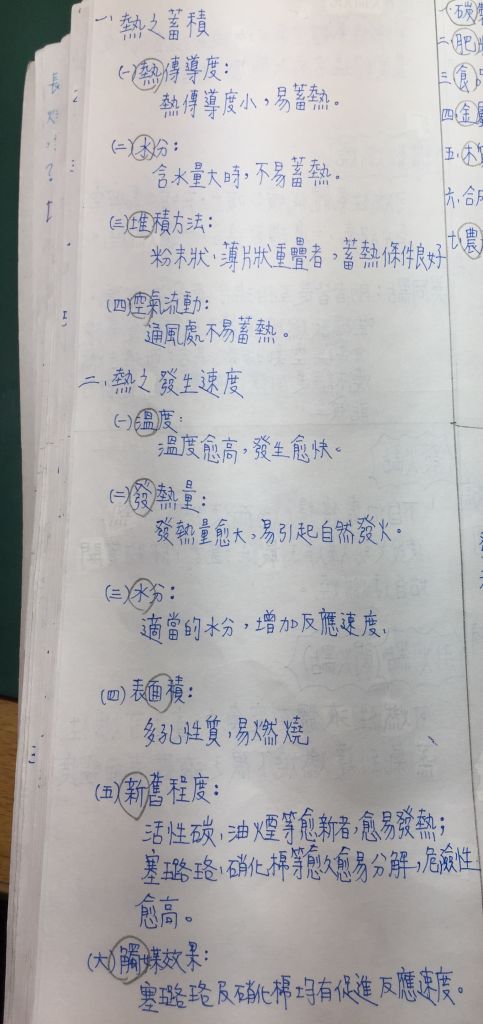 一、熱之蓄積
(一)熱傳導度:
熱傳導度小,易蓄熱。
(二)水分:
含水量大時,不易蓄熱。
(三)堆積方法:
粉末狀、薄片狀重疊者,蓄熱條件良好
(四)空氣流動:
通風處不易蓄熱。
二、熱之發生速度
(一)溫度:
溫度愈高,發生愈快。
(二)發熱量:
發熱量愈大,易引起自然發火。
(三)水分:
適當的水分,增加反應速度.
(四)表面積:
多孔性質,易燃燒
(五)新舊程度:
活性碳、油煙等愈新者,愈易發熱;
塞璐珞、硝化棉等愈久愈易分解,危險性
愈高。
(六)觸媒效果:
塞璐珞及硝化棉均有促進反應速度。
一、碳
二、肥
三、食品
四、金屬
五、木質
六、合成
七、農